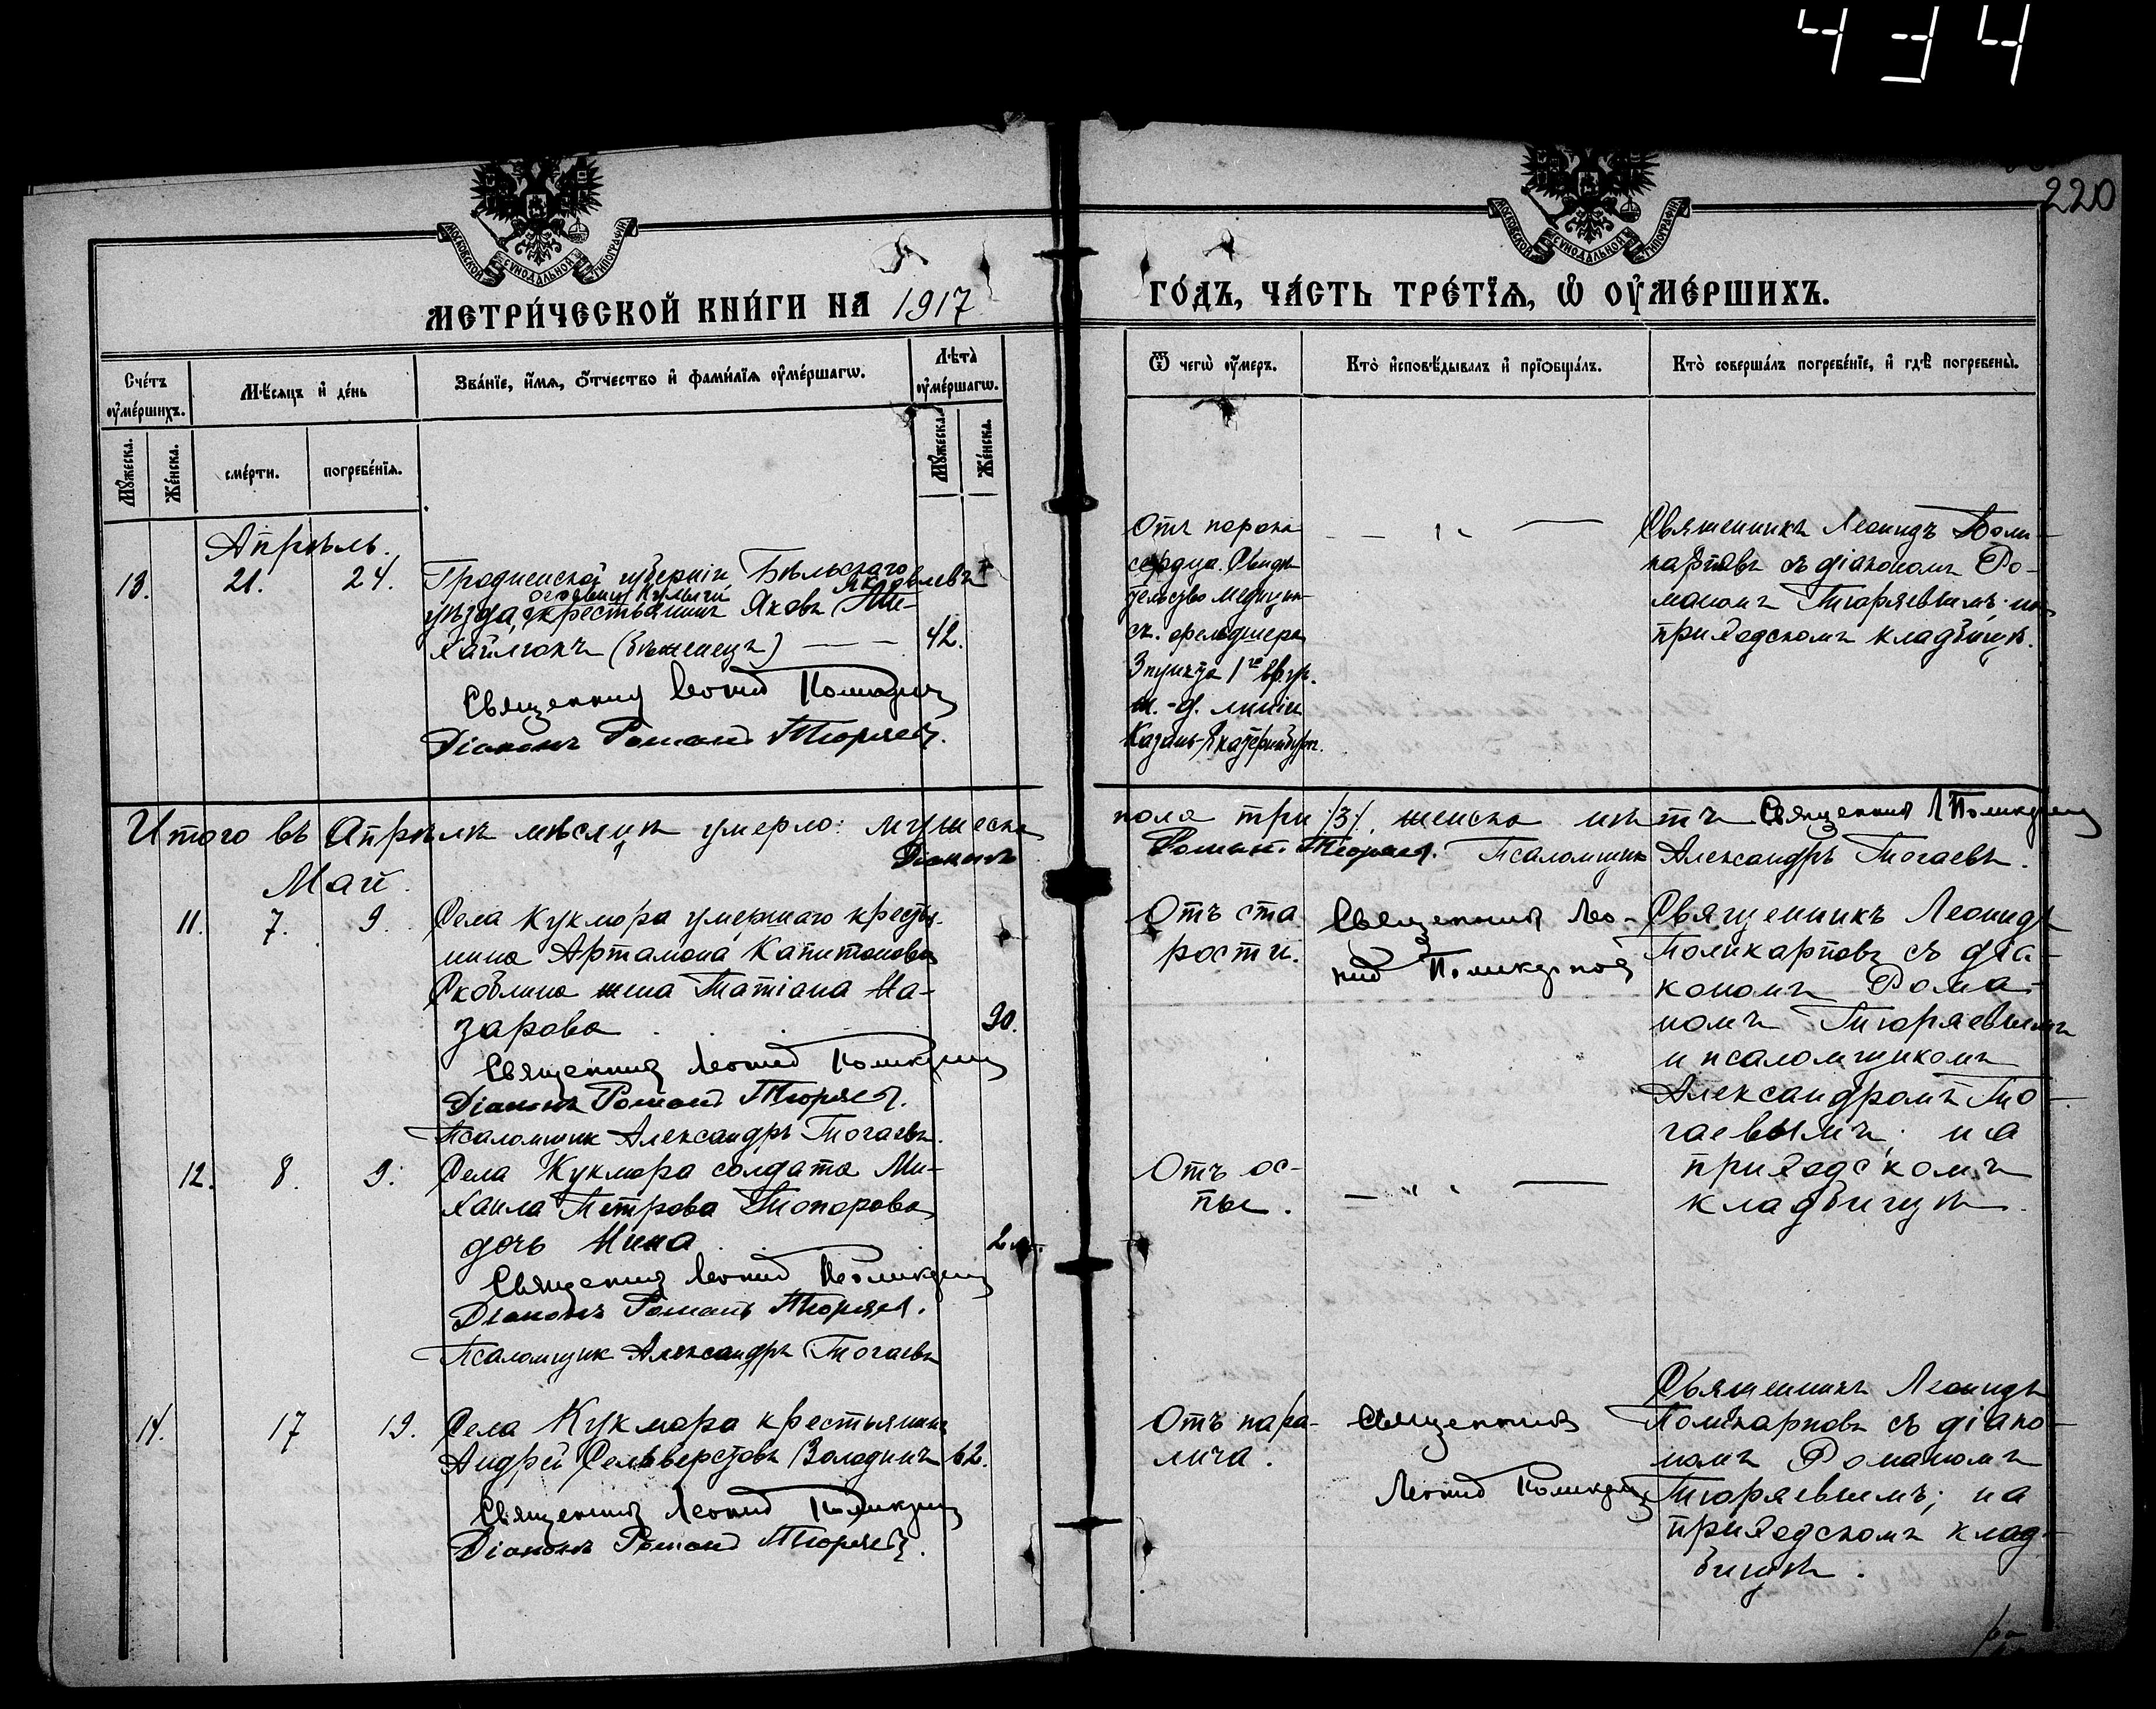 434
220
МОСКОВСКОЙ СѴНОДАЛЬНОЙ ТИПОГРАФІИ
МОСКОВСКОЙ СѴНОДАЛЬНОЙ ТИПОГРАФІИ
МЕТРИ́ЧЕСКОЙ КНИ́ГИ НА 1917
ГО́ДЪ, ЧА́СТЬ ТРЕ́ТЇѦ, Ѡ҆ ОУ҆МЕ́РШИХЪ.
Сче́тъ оу҆ме́ршихъ.
Мѣ́сѧцъ и҆ де́нь
Зва́нїе, и҆́мѧ, ѻ҆́тчество и҆ фами́лїѧ оу҆ме́ршагѡ.
Лѣ́та оу҆ме́ршагѡ.
Ѿ чегѡ̀ оу҆́меръ.
Кто̀ и҆сповѣ́дывалъ и҆ прїѡбща́лъ.
Кто̀ соверша́лъ погребе́нїе, и҆ гдѣ̀ погребены̀.
Мꙋ́жеска.
Же́нска.
сме́рти.
погребе́нїѧ.
Мꙋ́жеска.
Же́нска.
Апрѣль.
13.
21.
24.
Гродненской губерніи, Бѣльскаго
уѣзда, крестьянинъ Яковъ Яковлевъ Ми-
хайлюкъ (бѣженецъ) — — 42.
Священникъ Леонид Поликарпов
Діаконъ Романъ Тюряевъ.
Отъ порока
сердца. Свидѣ-
тельство медицин-
ск. фельдшера
3 пункта 1го вр. уч.
ж.-д. линіи
Казань-Екатеринбург.
— — " — —
Священникъ Леонидъ Поли-
карповъ съ діакономъ Ро-
маномъ Тюряевымъ на
приходскомъ кладбищѣ.
Итого въ Апрѣлѣ мѣсяцѣ умерло: мужеска
пола три /3/, женска нѣтъ Священникъ Л Поликарпов
Діаконъ Романъ Тюряевъ. Псаломщик Александръ Тогаевъ.
Май.
11.
7.
9.
Села Кукмора умершаго крестья-
нина Артамона Капитонова
Скоблина жена Татіана На-
зарова . . . 90.
Священник Леонид Поликарпов
Діаконъ Романъ Тюряевъ.
Псаломщик Александръ Тогаевъ.
Отъ ста
рости.
Священник Лео-
нид Поликарпов
Священникъ Леонидъ
Поликарповъ съ діа-
кономъ Рома-
номъ Тюряевымъ
и псаломщикомъ
Александромъ То-
гаевымъ; на
приходскомъ
кладбищѣ.
12.
8.
9.
Села Кукмора солдата Ми-
хаила Петрова Топорова
дочь Нина . . 2 м.
Священник Леонид Поликарпов
Діаконъ Романъ Тюряевъ.
Псаломщик Александръ Тогаевъ
Отъ ос-
пы.
— " —
14.
17
19.
Села Кукмора крестьянинъ
Андрей Селиверстовъ Володинъ 62.
Священник Леонид Поликарпов
Діаконъ Романъ Тюряевъ.
Отъ пара-
лича.
Священник
Леонид Поликарпов
Священникъ Леонидъ
Поликарповъ съ діако-
номъ Романомъ
Тюряевымъ; на
приходскомъ клад-
бищѣ.